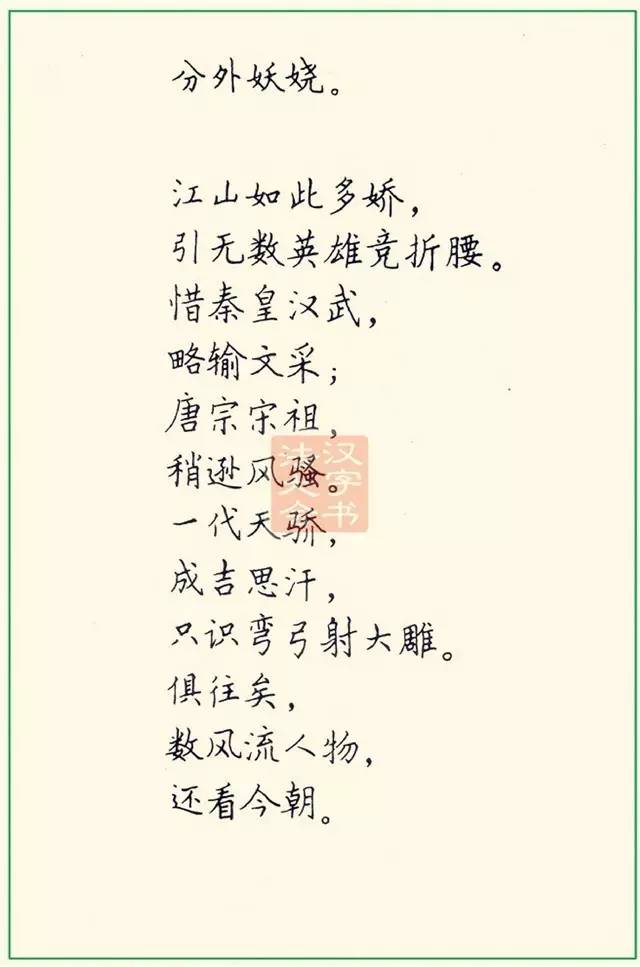 分外妖娆。
江山如此多娇，
引无数英雄竞折腰。
惜秦皇汉武，
略输文采；
唐宗宋祖，
稍逊风骚。
一代天骄，
成吉思汗，
只识弯弓射大雕。
俱往矣，
数风流人物，
还看今朝。
汉字书
法大全